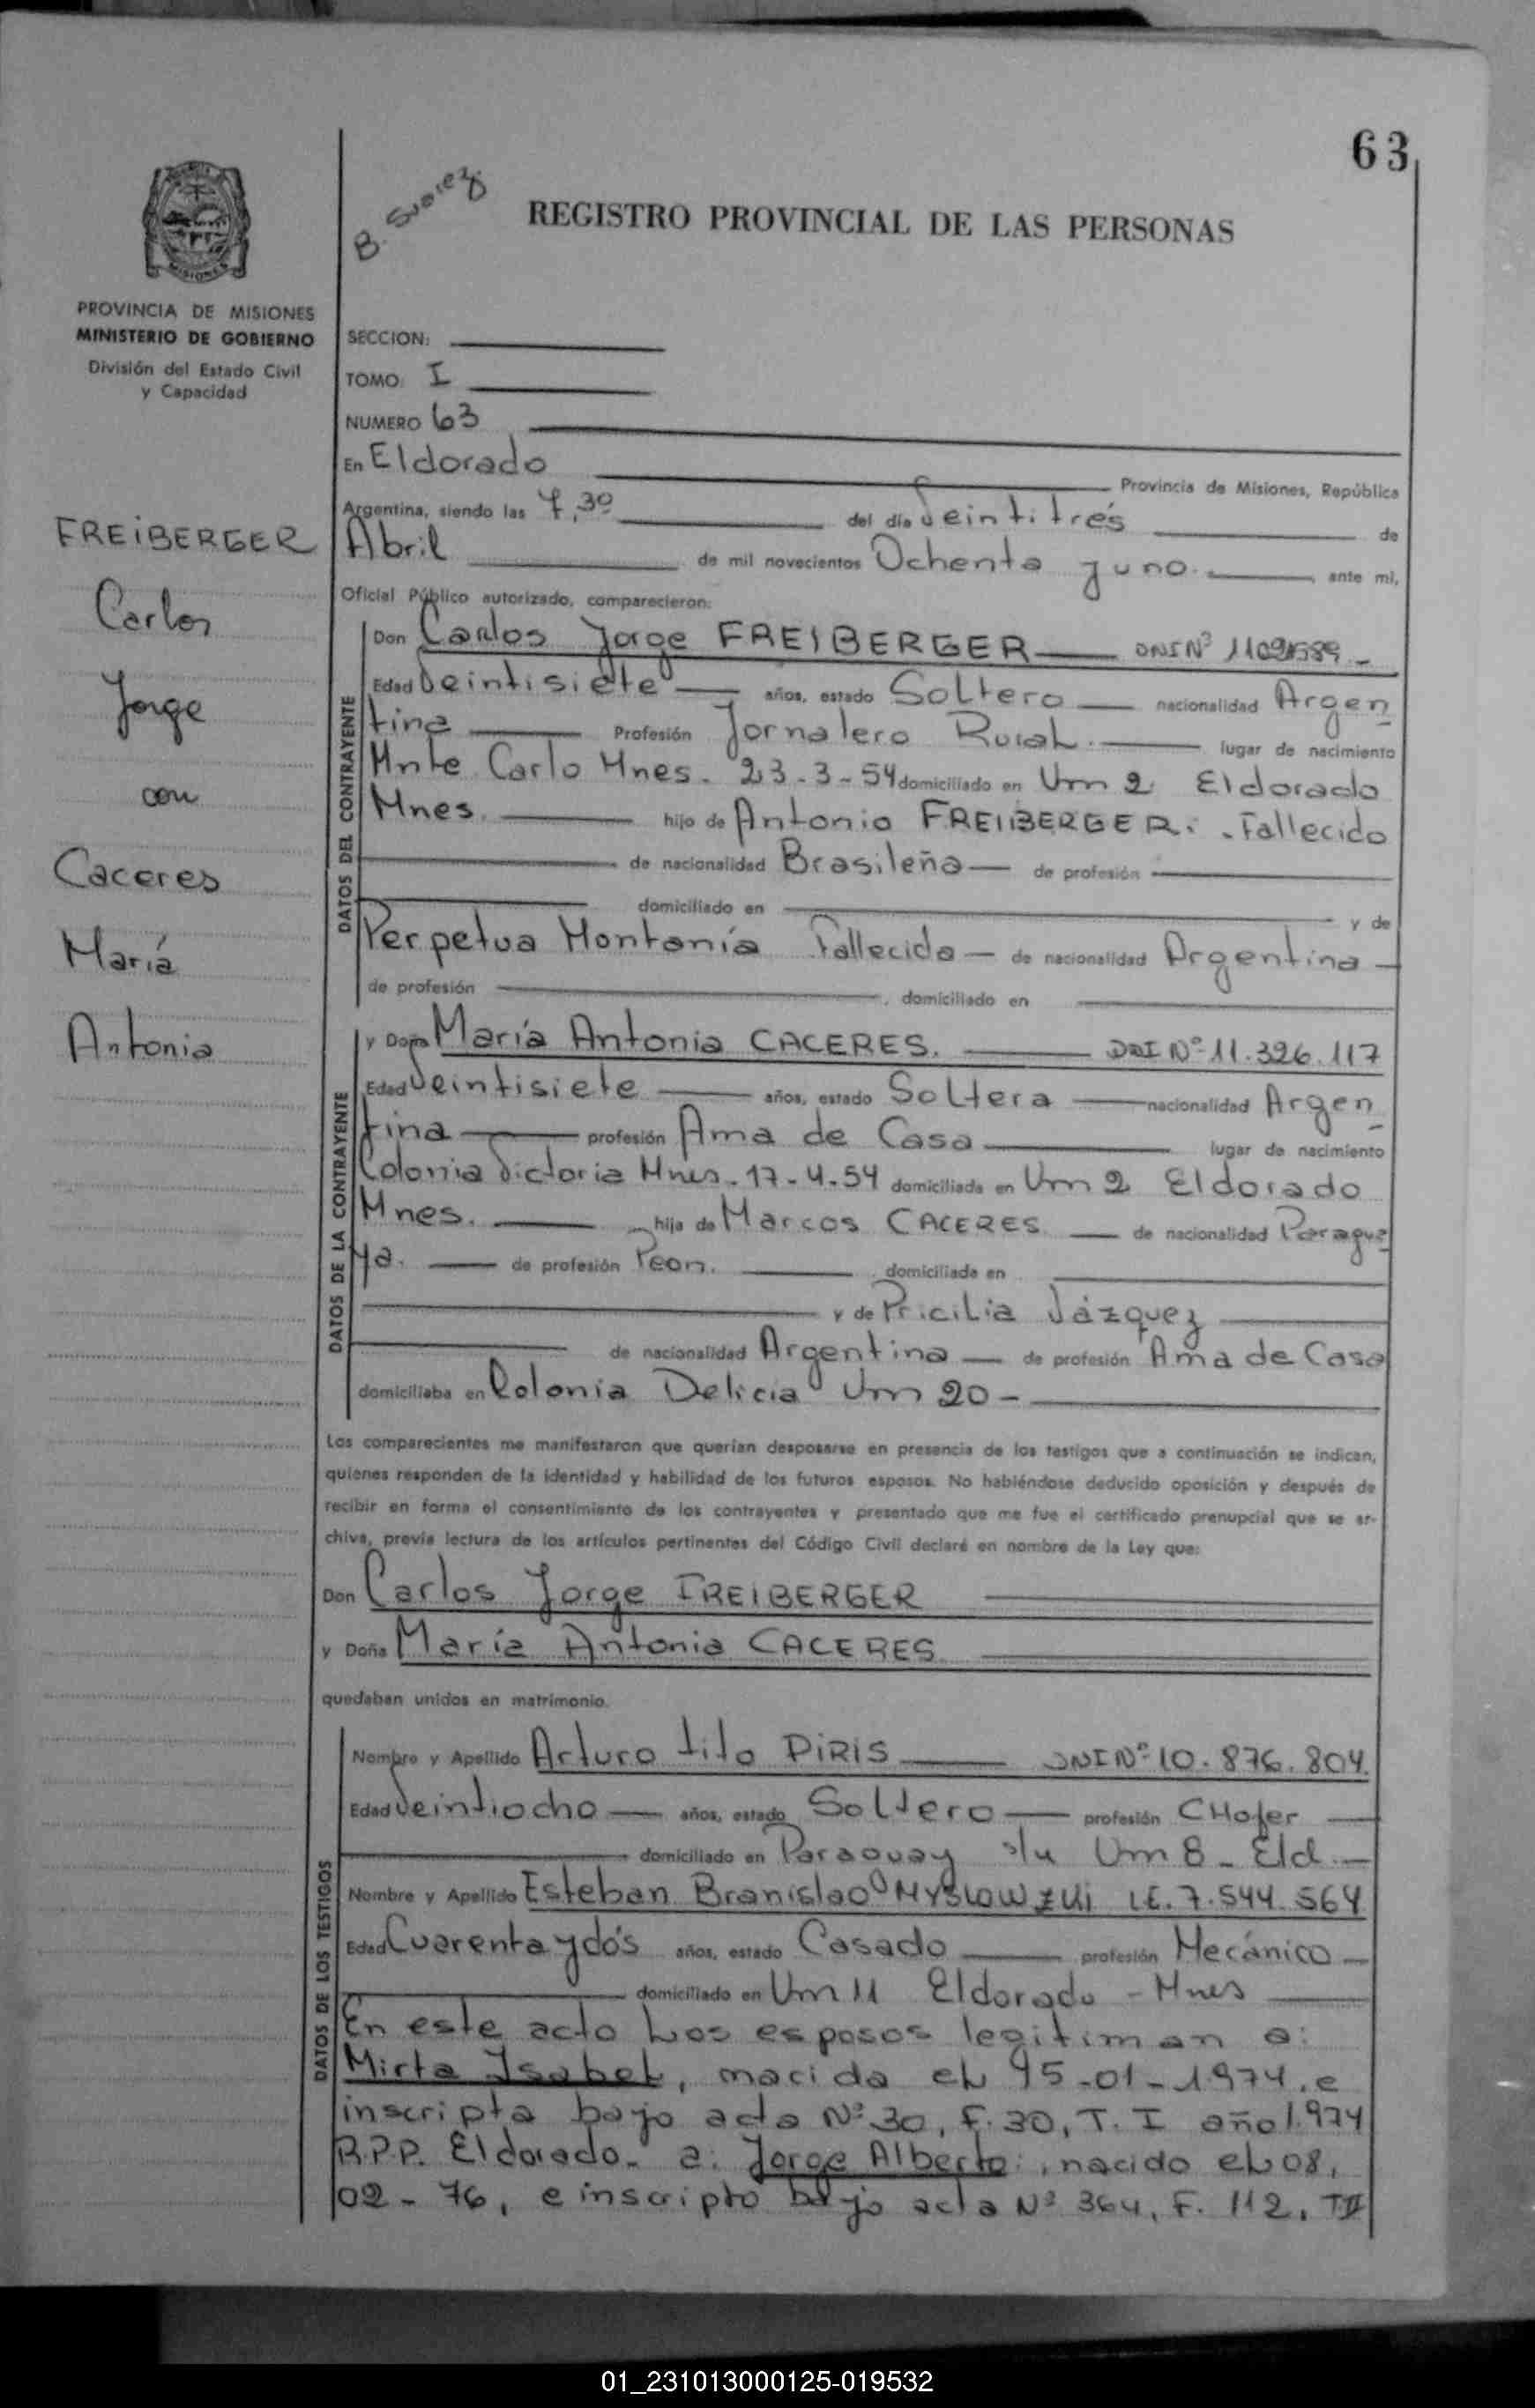 63
B. Suarez
REGISTRO PROVINCIAL DE LAS PERSONAS
MISIONES
PROVINCIA DE MISIONES
MINISTERIO DE GOBIERNO
División del Estado Civil
y Capacidad
SECCION:
TOMO: I
NUMERO 63
En Eldorado
Provincia de Misiones, República
Argentina, siendo las 7,30 del día Veintitrés de
Abril de mil novecientos Ochenta y uno. ante mi,
Oficial Público autorizado, comparecieron:
FREIBERGER
Carlos
Jorge
con
Caceres
María
Antonia
DATOS DEL CONTRAYENTE
Don Carlos Jorge FREIBERGER DNI Nº
Edad Veintisiete años, estado Soltero nacionalidad Argen
tina Profesión Jornalero Rural. lugar de nacimiento
Mnte Carlo Mnes. 23-3-54 domiciliado en Km 2 Eldorado
Mnes. hijo de Antonio FREIBERGER. - Fallecido
de nacionalidad Brasileña de profesión
domiciliado en y de
Perpetua Montanía Fallecida de nacionalidad Argentina
de profesión , domiciliado en
DATOS DE LA CONTRAYENTE
y Doña María Antonia CACERES. DNI Nº 11.326.117
Edad Veintisiete años, estado Soltera nacionalidad Argen
tina profesión Ama de Casa lugar de nacimiento
Colonia Victoria Mnes. 17-4-54 domiciliada en Km 2 Eldorado
Mnes. hija de Marcos CACERES de nacionalidad Paragua
ya. de profesión Peon. domiciliada en
y de Pricilia Vázquez
de nacionalidad Argentina de profesión Ama de Casa
domiciliaba en Colonia Delicia Km 20 -
Los comparecientes me manifestaron que querían desposarse en presencia de los testigos que a continuación se indican,
quienes responden de la identidad y habilidad de los futuros esposos. No habiéndose deducido oposición y después de
recibir en forma el consentimiento de los contrayentes y presentado que me fue el certificado prenupcial que se ar-
chiva, previa lectura de los artículos pertinentes del Código Civil declaré en nombre de la Ley que:
Don Carlos Jorge FREIBERGER
y Doña María Antonia CACERES
quedaban unidos en matrimonio.
DATOS DE LOS TESTIGOS
Nombre y Apellido Arturo Tito PIRIS DNI Nº 10.876.804.
Edad Veintiocho años, estado Soltero profesión CHofer
domiciliado en Paraguay s/n Km 8 - Eld.
Nombre y Apellido Esteban Branislao MYSLOWZKi L.E. 7.544.564
Edad Cuarenta y dós años, estado Casado profesión Mecánico
domiciliado en Km 11 Eldorado - Mnes
En este acto Los esposos legitiman a:
Mirta Isabel, nacida el 15-01-1974, e
inscripta bajo acta Nº 30, F. 30, T. I año 1.974
R.P.P. Eldorado. a: Jorge Alberto:, nacido el 08,
02 - 76, e inscripto bajo acta Nº 364, F. 112, T II
01_231013000125-019532